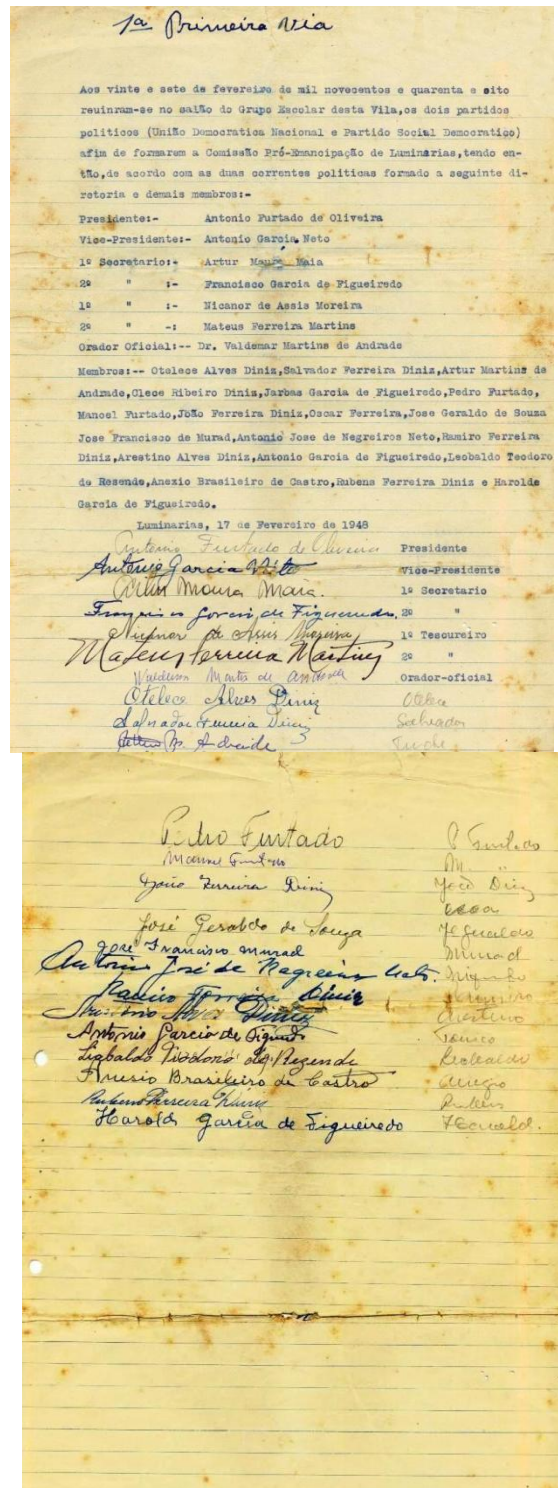 1ª Primeira Via
Aos vinte e sete de fevereiro de mil novecentos e quarenta e oito
reuinram-se no salão do Grupo Escolar desta Vila,os dois partidos
politicos (União Democratica Nacional e Partido Social Democratico)
afim de formarem a Comissão Pró-Emancipação de Luminárias,tendo en-
tão,de acordo com as duas correntes politicas formado a seguinte di-
retoria e demais membros:-
Presidente:- Antonio Furtado de Oliveira
Vice-Presidente:- Antonio Garcia Neto
1º Secretario:- Artur Moura Maia
2º " :- Francisco Garcia de Figueiredo
1º " :- Nicanor de Assis Moreira
2º " -: Mateus Ferreira Martins
Orador Oficial:-- Dr. Valdemar Martins de Andrade
Membros:-- Otelece Alves Diniz,Salvador Ferreira Diniz,Artur Martins de
Andrade,Clece Ribeiro Diniz,Jarbas Garcia de Figueiredo,Pedro Furtado,
Manoel Furtado,João Ferreira Diniz,Oscar Ferreira,Jose Geraldo de Souza
Jose Francisco de Murad,Antonio Jose de Negreiros Neto,Ramiro Ferreira
Diniz,Arestino Alves Diniz,Antonio Garcia de Figueiredo,Leobaldo Teodoro
de Resende,Anezio Brasileiro de Castro,Rubens Ferreira Diniz e Harolde
Garcia de Figueiredo.
Luminarias, 17 de Fevereiro de 1948
Antonio Furtado de Oliveira Presidente
Antonio Garcia Neto Vice-Presidente
Artur Moura Maia. 1º Secretario
Francisco Garcia de Figueiredo. 2º "
Nicanor de Assis Moreira 1º Tesoureiro
Mateus Ferreira Martins 2º "
Waldemar Martins de Andrade Orador-oficial
Otelece Alves Diniz Otelece
Salvador Ferreira Diniz Salvador
Andrade
Pedro Furtado P Furtado
Manoel Furtado M "
João Ferreira Diniz João Diniz
José Geraldo de Souza
José Francisco Murad Murad
Antonio José de Negreiros Neto.
Ramiro Ferreira Diniz
Alves Diniz
Antonio Garcia de
Teodoro de Rezende
Anesio Brasileiro de Castro
Rubens Ferreira Diniz Rubens
Harold Garcia de Figueiredo Harold.